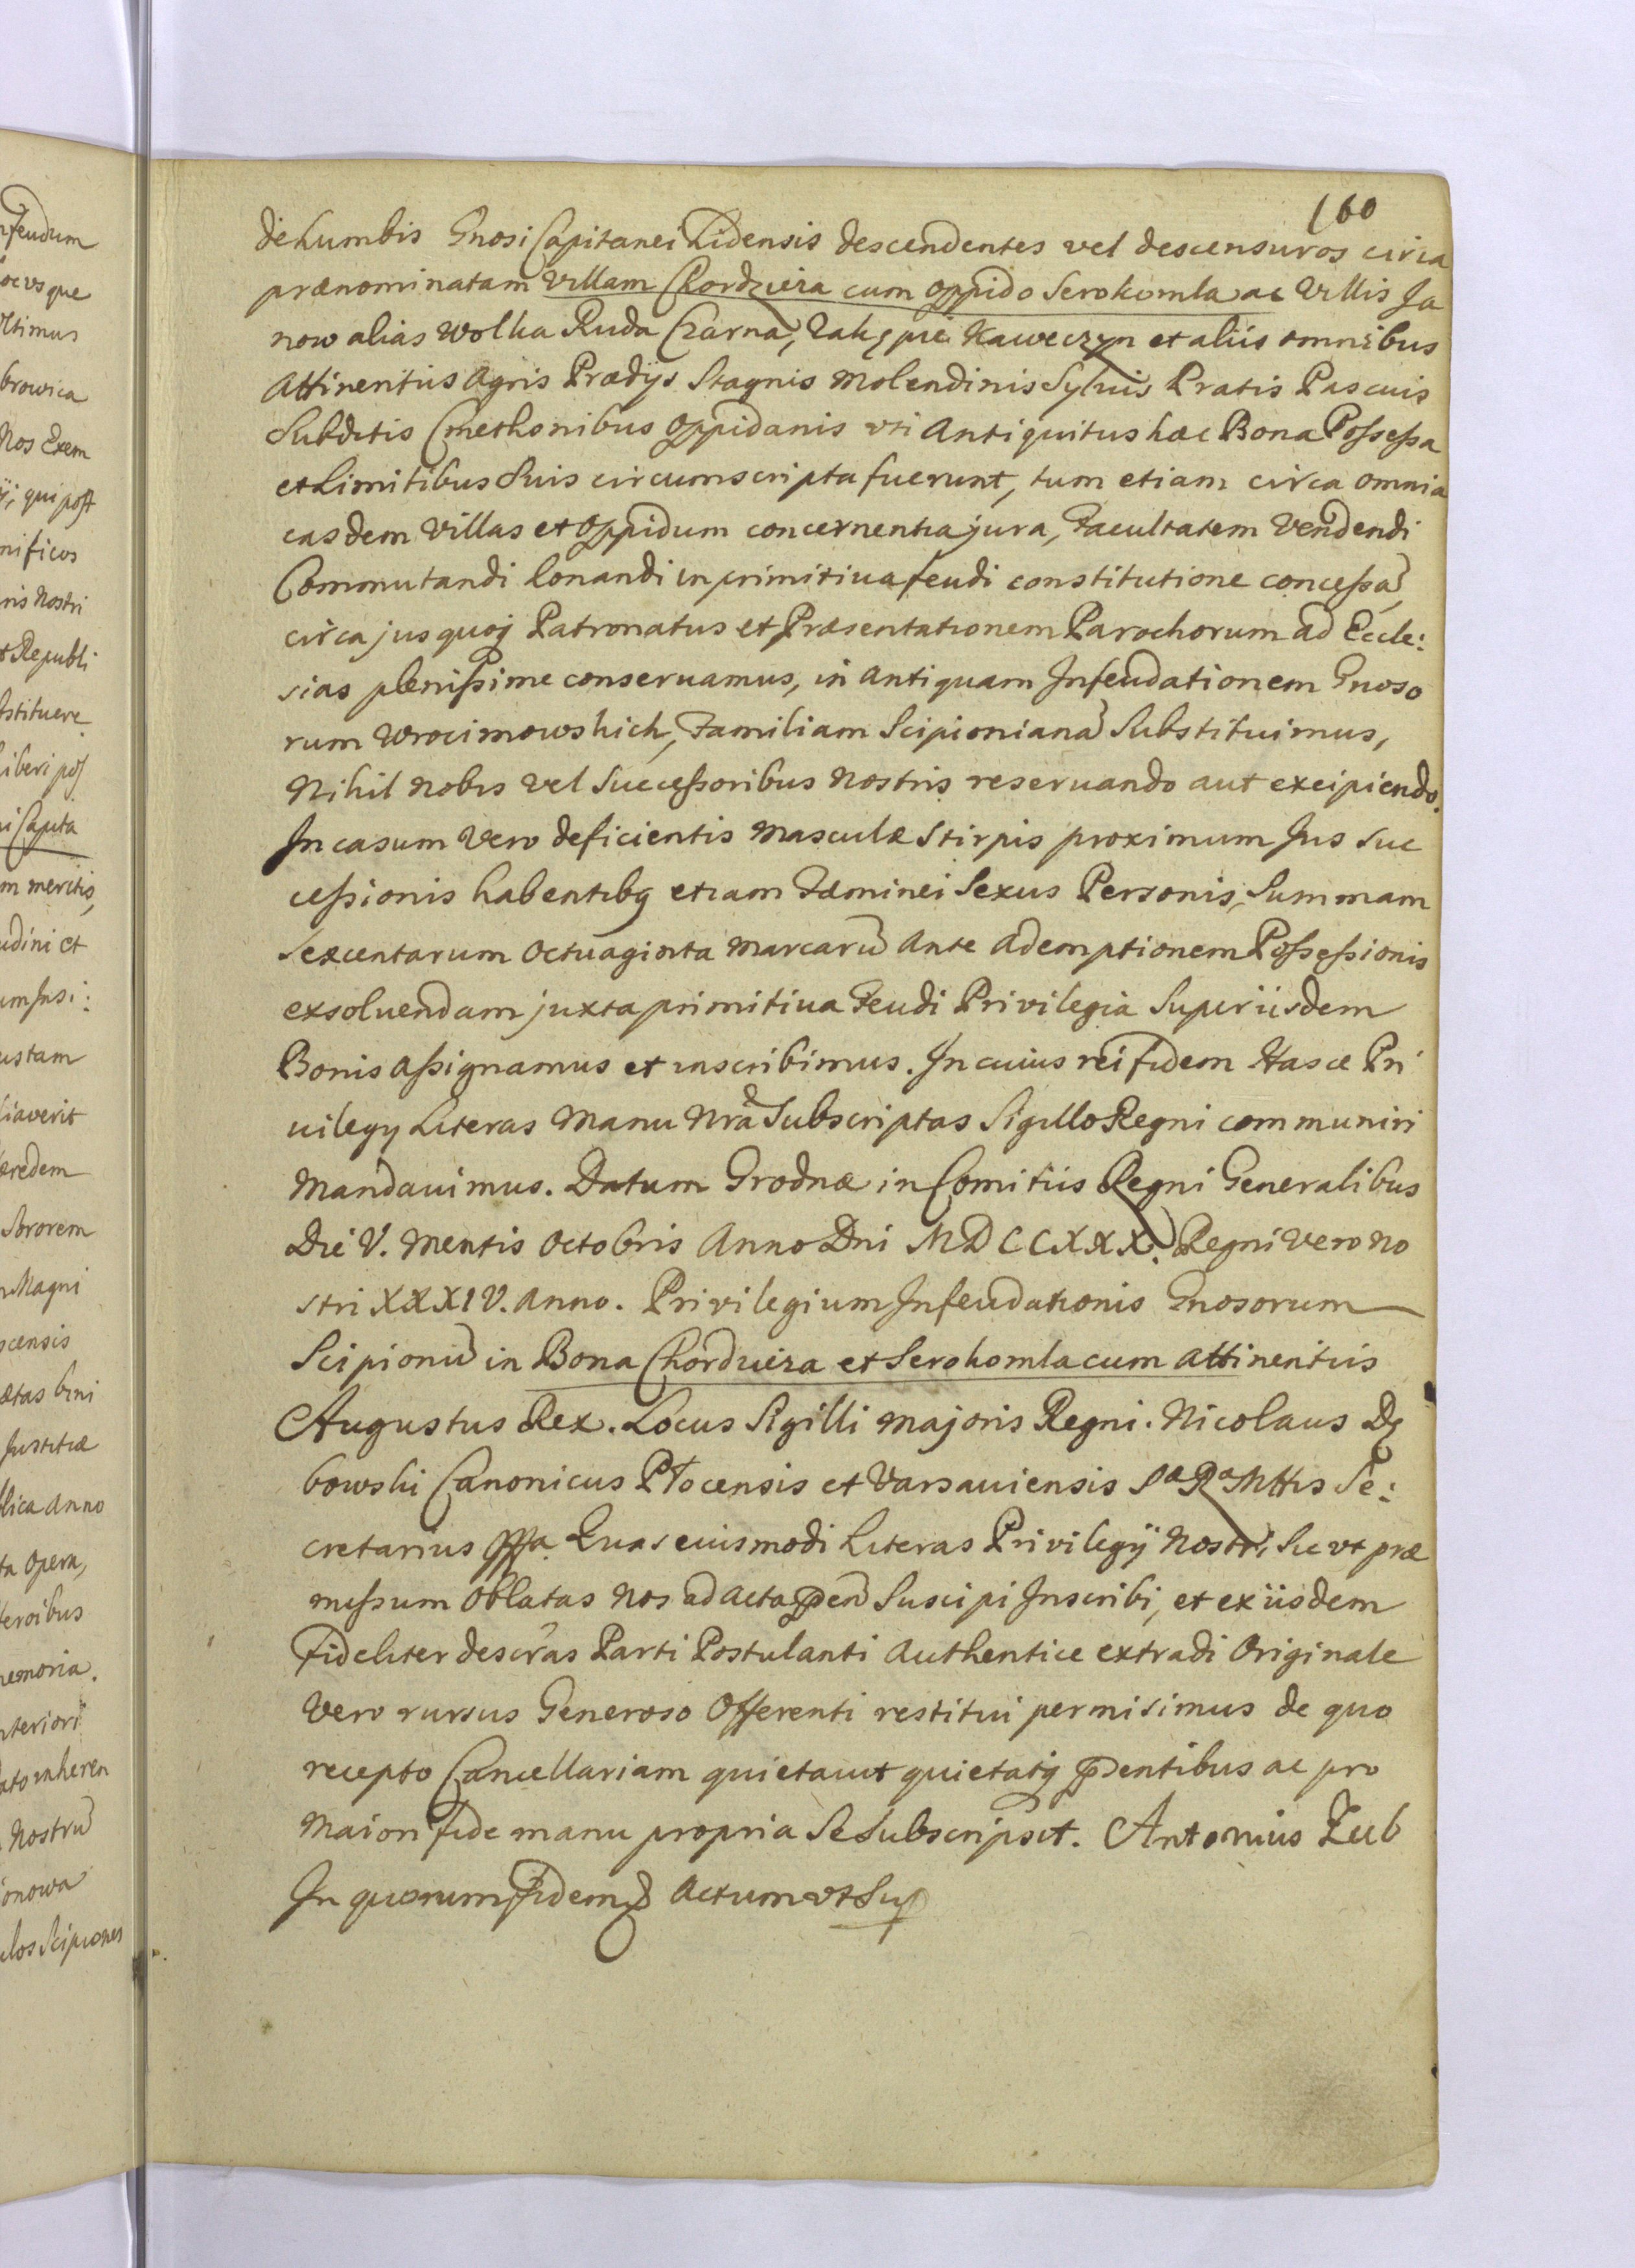 160
de Lumbis Gnosi Capitanei Lidensis descendentes vel descensuros circa
prænominatam Villam Chordzieza cum Oppido Serokomla ac Villis Ja
now alias Wolka Ruda Czarna, Zakępie Kaweczyn et aliis omnibus
Attinentiis Agris Prædijs Stagnis Molendinis Sylvis Pratis Pascuis
Subditis Cmethonibus Oppidanis vti Antiquitus hæc Bona Possessa
et Limitibus Suis circumscripta fuerunt, tum etiam circa omnia
easdem Villas et Oppidum concernentia jura, Facultatem Vendendi
Commutandi Donandi in primitiva feudi constitutione concessã,
circa jus quoq Patronatus et Præsentationem Parochorum ad Eccle:
sias plenissime conseruamus, in Antiquam Infeudationem Gnoso
rum Wrocimowskich, Familiam Scipionianã Substituimus,
Nihil nobis vel Successoribus Nostris reseruando aut excipiendo.
In casum Vero deficientis Masculæ Stirpis proximum Jus Suc
cessionis habentibq etiam Fæminei Sexus Personis, Summam
Sexcentarum Octuaginta Marcarũ Ante Ademptionem Possessionis
exsoluendam juxta primitiua Feudi Privilegia Super iisdem
Bonis Assignamus et inscribimus. In cuius rei fidem Hasce Pri
uilegy Literas Manu Nrã Subscriptas Sigillo Regni communiri
Mandauimus. Datum Grodnæ in Comitiis Regni Generalibus
Die V. Mensis Octobris Anno Dni MDCCXXX. Regni Vero No
stri XXXIV. Anno. Privilegium Infeudationis Gnosorum
Scipionũ in Bona Chordzieza et Serokomla cum Attinentiis
Augustus Rex. Locus Sigilli Majoris Regni. Nicolaus Dę
bowski Canonicus Płocensis et Varsauiensis Sᵃ Rᵃ Mttis Se:
cretarius Quas eiusmodi Literas Privilegÿ Nostri, Sic vt præ
missum Oblatas Nos ad Acta Suscipi Inscribi, et ex iisdem
fideliter Parti Postulanti Authentice extradi Originale
Vero rursus Generoso Offerenti restitui permisimus de quo
recepto Cancellariam quietauit quietatq pñtibus ac pro
Maiori fide manu propria Se Subscripsit. Antonius Zub
In quorum fidem Actum vt Sup